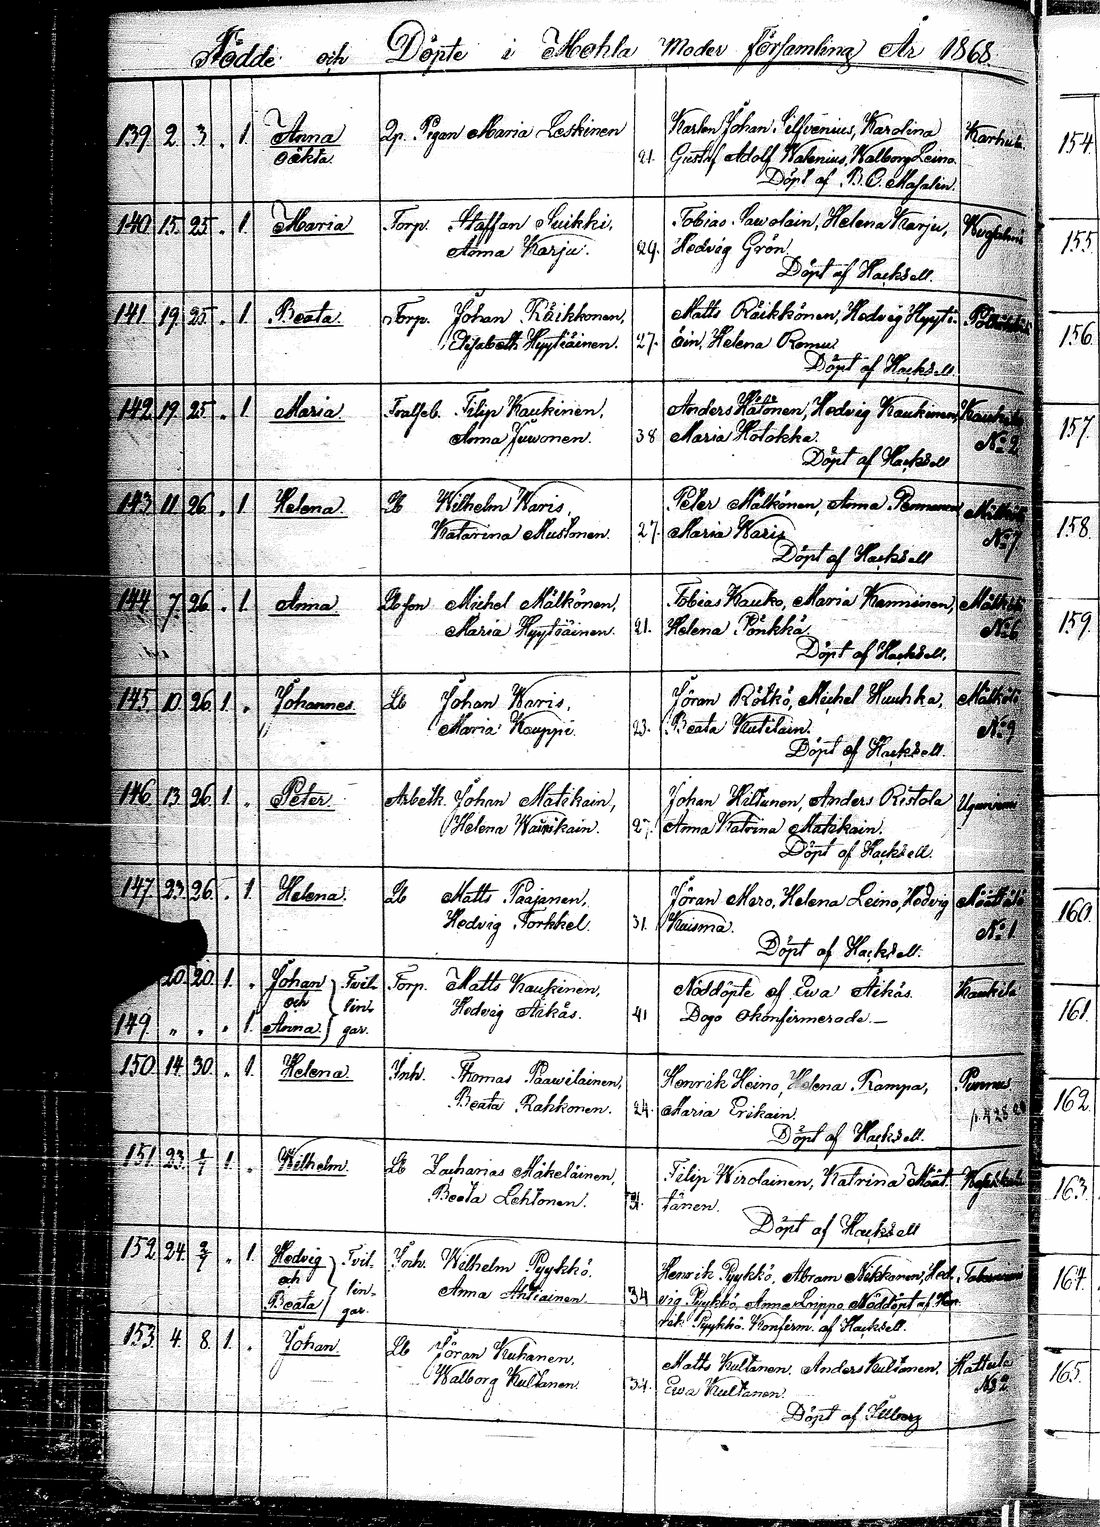 Födde och Döpte i Mohla Moder församling År 1868.
139 2 3 . 1. Anna Qp. Pigan Maria Leskinen Karlen Johan Silfvenius, Karolina Karhula.
oäkta. 21. Gustaf Adolf Walenius, Walborg Leino.
Döpt af B. O. Masalin.
140 15 25 . 1. Maria Torp. Staffan Suikki, Tobias Pawolain, Helena Karju,
Anna Karju. 29. Hedvig Grön.
Döpt af Hacksell.
141 19 25 . 1. Beata. Torp. Johan Räikkönen, Matts Räikkönen, Hedvig Hyyti-
Elisabeth Hyytiäinen. 27. äin, Helena Romu.
Döpt af Hacksell.
142 19 25 . 1 Maria. Filip Kaukinen, Anders Hätönen, Hedvig Kaukinen, Kaukila
Anna Juvonen. 38 Maria Hotokka. No 2
Döpt af Hacksell
143 11 26 . 1 Helena. Lb Wilhelm Waris, Peter Mälkönen, Anna Pennanen Mälkölä
Katarina Mustonen. 27. Maria Waris No 7
Döpt af Hacksell
144 7 26 . 1. Anna Lb son Michel Mälkönen, Tobias Kauko, Maria Kanninen, Mälkölä
Maria Hyytiäinen. 21. Helena Pönkkä. No 6
Döpt af Hacksell.
145 10 26 1 . Johannes. Lb Johan Waris, Jöran Rötkö, Michel Huuhka, Mälkölä
Maria Kauppi. 23. Beata Kutilain. No 9
Döpt af Hacksell.
146 13 26 1. . Peter Arbetk. Johan Matikain, Johan Hiltunen, Anders Ristola
Helena Wainikain. 27. Anna Katrina Matikain.
Döpt af Hacksell.
147 23 26 . 1. Helena. Lb Matts Paajanen, Jöran Mero, Helena Leino, Hedvig
Hedvig Torkkel. 31. Kuisma. No 1
Döpt af Hacksell.
20 20 1. . Johan Tvil- Torp. Matts Kaukinen, Nöddöpte af Ewa Äikäs. Kaukila
och lin- Hedvig Äikäs. 41 Dogo okonfirmerade.—
149 " " . 1. Anna. gar.
150 14 30 . 1. Helena Inh. Thomas Paawilainen, Henrik Heino, Helena Rampa, Punnus
Beata Rahkonen. 24. Maria Erikain.
Döpt af Hacksell.
151 23 1/7 1. . Wilhelm. Lb Zacharias Mäkeläinen, Filip Wirolainen, Katrina Määt-
Beata Lehtonen. 31. tänen.
Döpt af Hacksell
152 24 2/7 . 1. Hedvig Tvil- Inh. Wilhelm Pyykkö. Henrik Pyykkö, Abram Nikkonen, Hed-
och lin- Anna Ahtiainen. 34 vig Pyykkö, Anna Prippo Nöddöpt af Hen-
Beata gar. rik Pyykkö. Konfirm. af Hacksell.
153 4 8 1. . Johan. Lb Jöran Kuhanen, Matts Kultanen, Anders Kultanen, Hattula
Walborg Kultanen. 34. Ewa Kultanen. No 2
Döpt af Illberg
154
155
156
157
158
159
160
161
162
163
164
165